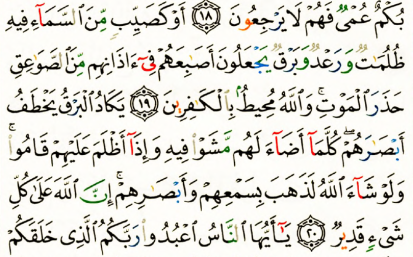 بُكْمٌ عُمْىٌ فَهُمْ لَا يَرْجِعُونَ ١٨ أَوْ كَصَيِّبٍ مِّنَ السَّمَآءِ فِيهِ
ظُلُمَٰتٌ وَرَعْدٌ وَبَرْقٌ يَجْعَلُونَ أَصَٰبِعَهُمْ فِىٓ ءَاذَانِهِم مِّنَ الصَّوَٰعِقِ
حَذَرَ الْمَوْتِ ۚ وَاللَّهُ مُحِيطٌۢ بِالْكَٰفِرِينَ ١٩ يَكَادُ الْبَرْقُ يَخْطَفُ
أَبْصَٰرَهُمْ ۖ كُلَّمَآ أَضَآءَ لَهُم مَّشَوْا۟ فِيهِ وَإِذَآ أَظْلَمَ عَلَيْهِمْ قَامُوا۟ ۚ
وَلَوْ شَآءَ اللَّهُ لَذَهَبَ بِسَمْعِهِمْ وَأَبْصَٰرِهِمْ ۚ إِنَّ اللَّهَ عَلَىٰ كُلِّ
شَىْءٍ قَدِيرٌ ٢٠ يَٰٓأَيُّهَا النَّاسُ اعْبُدُوا۟ رَبَّكُمُ الَّذِى خَلَقَكُمْ